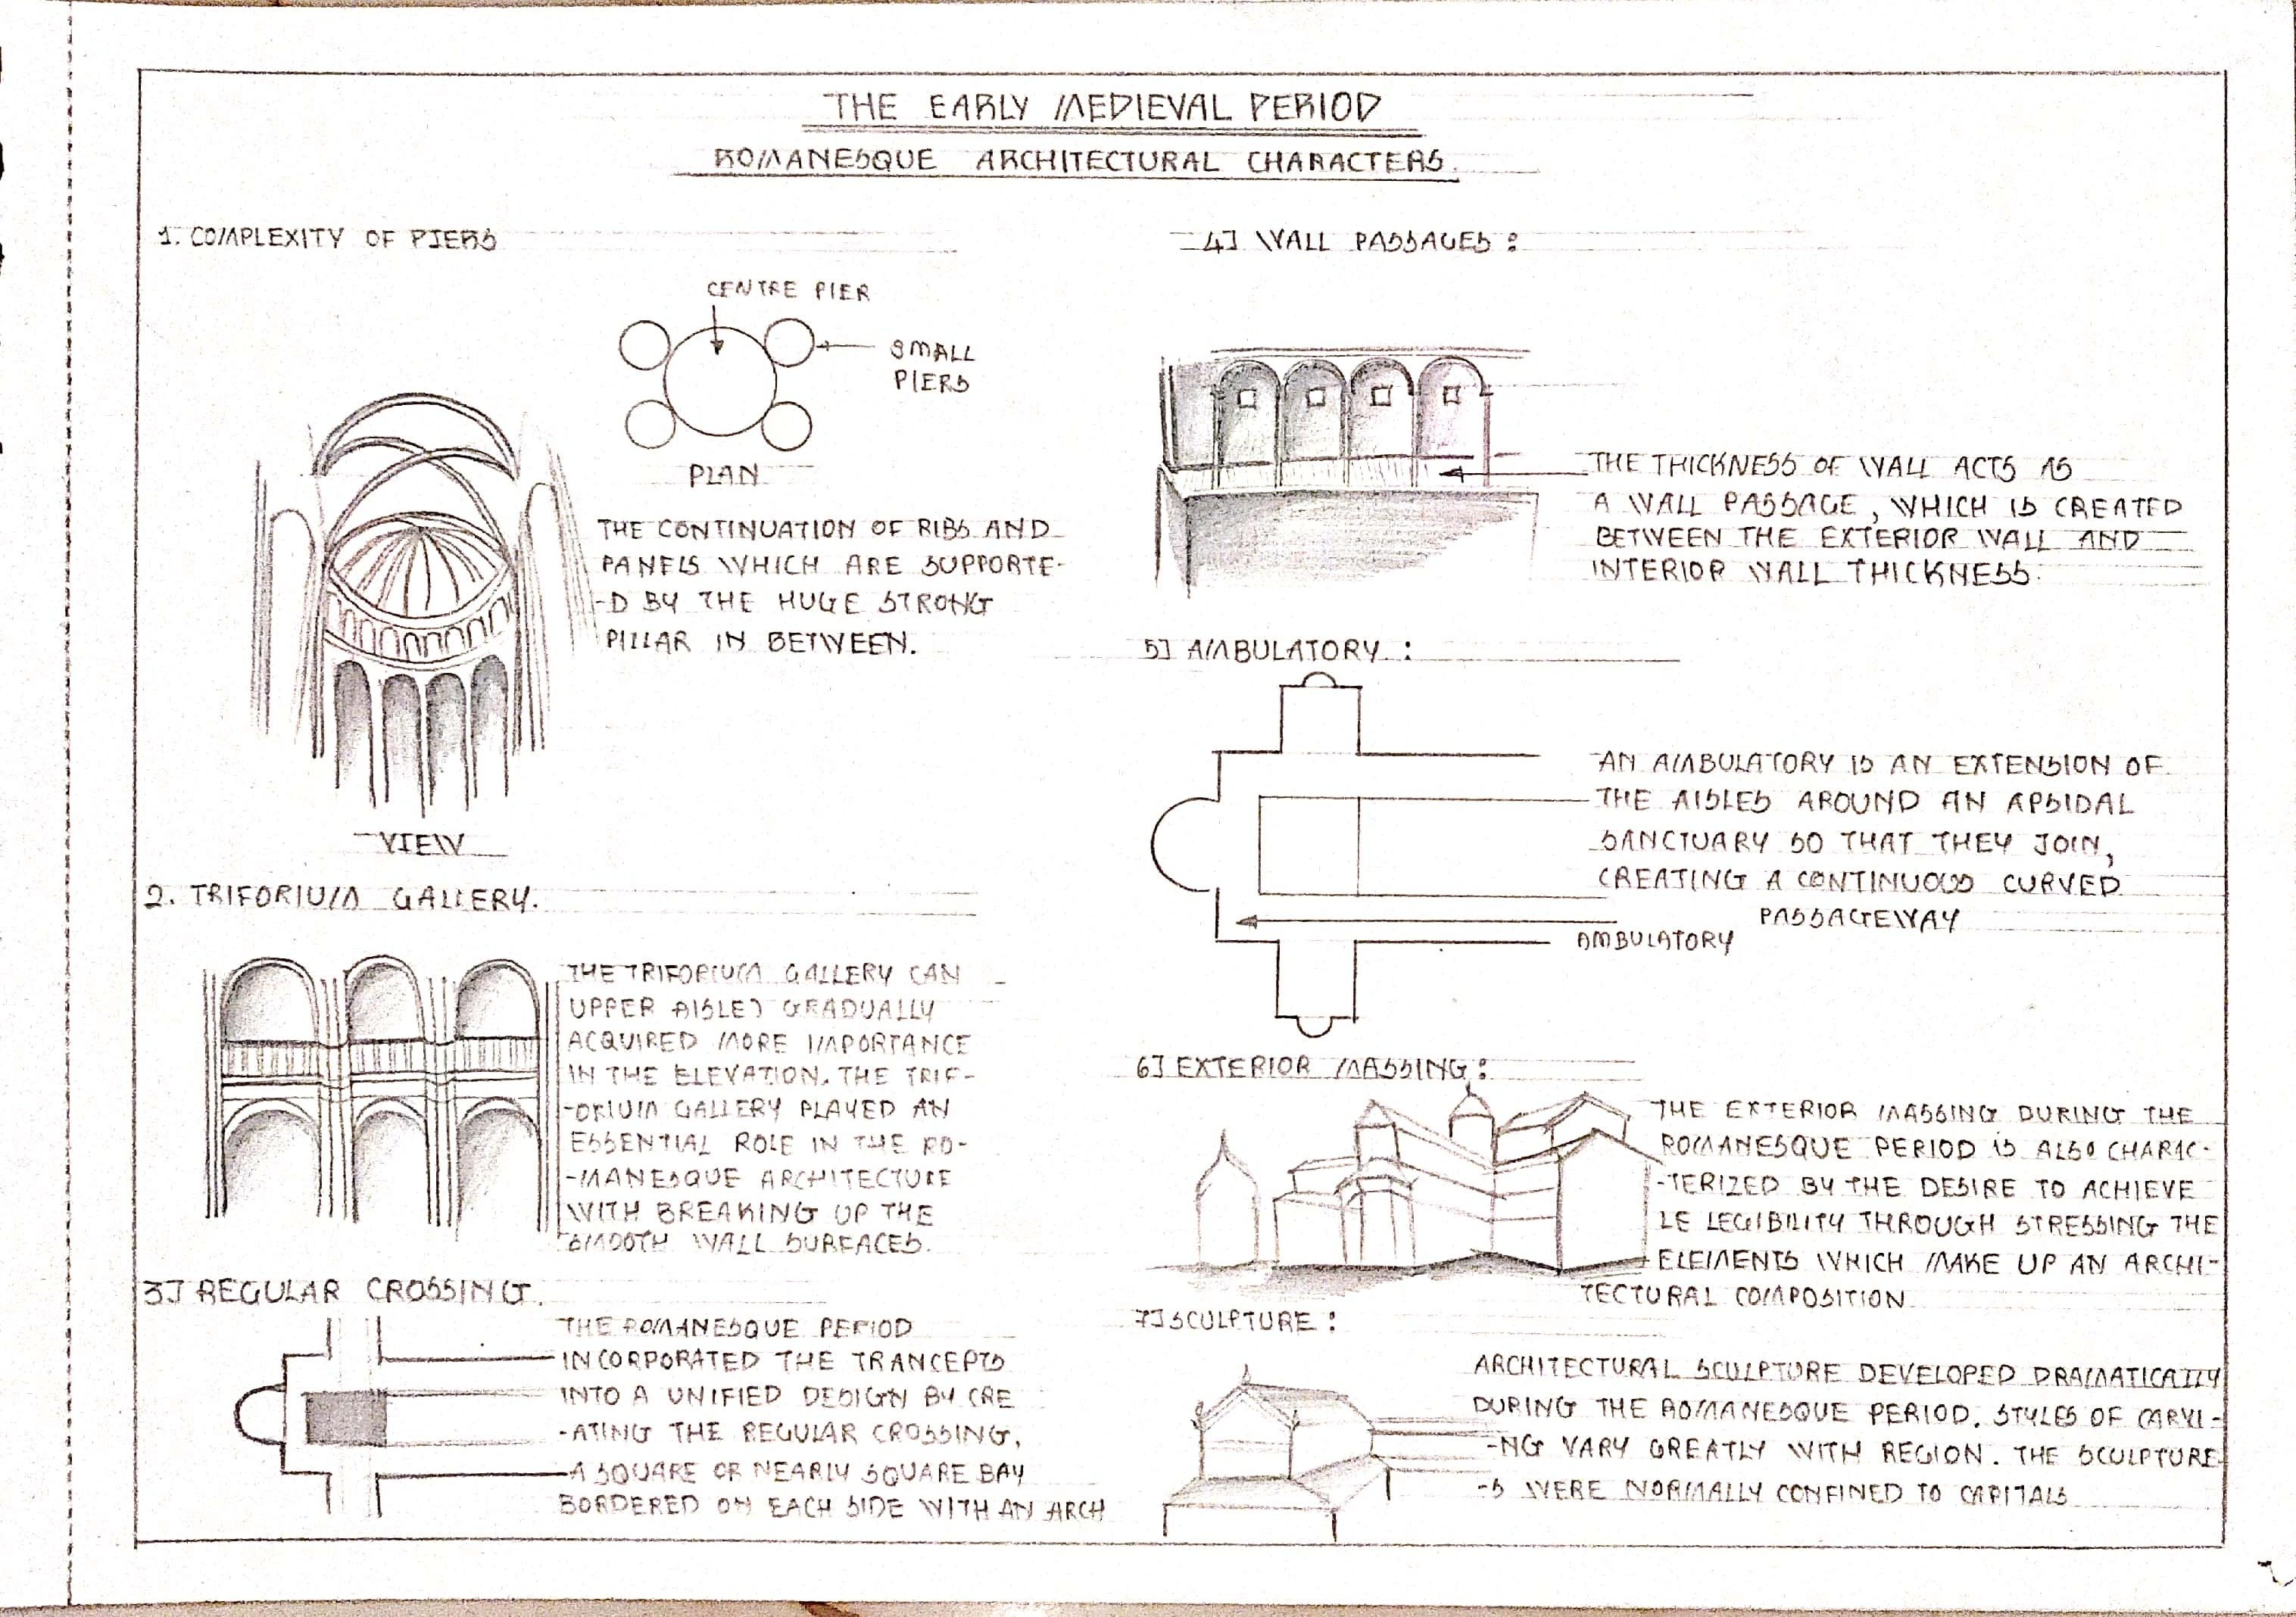 THE EARLY MEDIEVAL PERIOD
ROMANESQUE ARCHITECTURAL CHARACTERS.
1. COMPLEXITY OF PIERS
CENTRE PIER
SMALL
PIERS
PLAN
THE CONTINUATION OF RIBS AND
PANELS WHICH ARE SUPPORTE-
-D BY THE HUGE STRONG
PILLAR IN BETWEEN.
VIEW
2. TRIFORIUM GALLERY.
THE TRIFORIUM GALLERY CAN
UPPER AISLE) GRADUALLY
ACQUIRED MORE IMPORTANCE
IN THE ELEVATION. THE TRIF-
-ORIUM GALLERY PLAYED AN
ESSENTIAL ROLE IN THE RO-
-MANESQUE ARCHITECTURE
WITH BREAKING UP THE
SMOOTH WALL SURFACES.
3] REGULAR CROSSING.
THE ROMANESQUE PERIOD
INCORPORATED THE TRANCEPTS
INTO A UNIFIED DESIGN BY CRE
-ATING THE REGULAR CROSSING,
A SQUARE OR NEARLY SQUARE BAY
BORDERED ON EACH SIDE WITH AN ARCH
4] WALL PASSAGES :
THE THICKNESS OF WALL ACTS AS
A WALL PASSAGE, WHICH IS CREATED
BETWEEN THE EXTERIOR WALL AND
INTERIOR WALL THICKNESS.
5] AMBULATORY :
AN AMBULATORY IS AN EXTENSION OF
THE AISLES AROUND AN APSIDAL
SANCTUARY SO THAT THEY JOIN,
CREATING A CONTINUOUS CURVED
PASSAGEWAY
AMBULATORY
6] EXTERIOR MASSING :
THE EXTERIOR MASSING DURING THE
ROMANESQUE PERIOD IS ALSO CHARAC-
-TERIZED BY THE DESIRE TO ACHIEVE
LE LEGIBILITY THROUGH STRESSING THE
ELEMENTS WHICH MAKE UP AN ARCHI-
TECTURAL COMPOSITION
7] SCULPTURE :
ARCHITECTURAL SCULPTURE DEVELOPED DRAMATICALLY
DURING THE ROMANESQUE PERIOD. STYLES OF CARVI-
-NG VARY GREATLY WITH REGION. THE SCULPTURE
-S WERE NORMALLY CONFINED TO CAPITALS